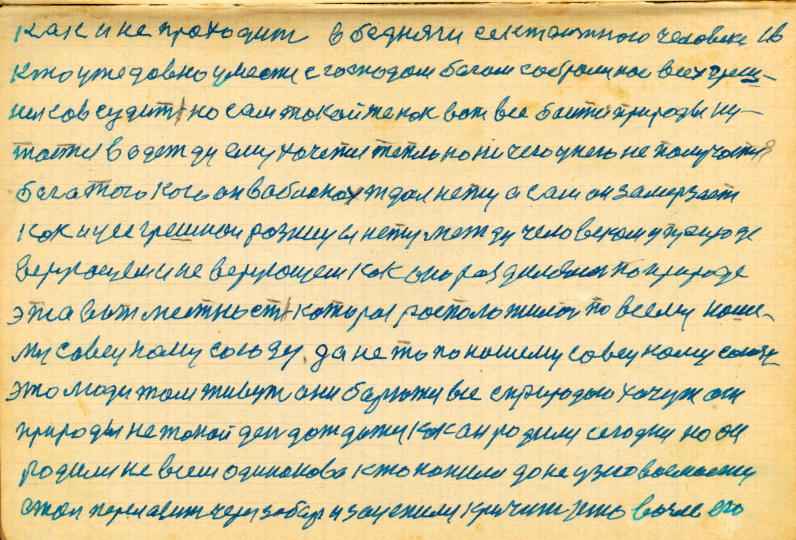 как и не проходит в бедняги сектантного человека Ив
кто уже давно умасти с господом богом собрались всех греш-
ников судит, но сам такой же как вот все боится природы ку-
тается в одежду ему хочется тепло но ничего у него не получается
бога того кого он в облаках ждал нету а сам он замерзает
как и все грешной разницы нету между человеком и природе
верующем и не верующем как она разделена по природе
эта вот местность которая расположилась по всему наше-
му совецкому союзу, да не то по нашему совецкому союзу
это люди там живут они барются все с природою хочуж они
природы не такой ден дождажи как он родили сегодни но он
родили не всем одинаково кто попило до не узно
стал перелазит через забор и зацепили кричит это возле его